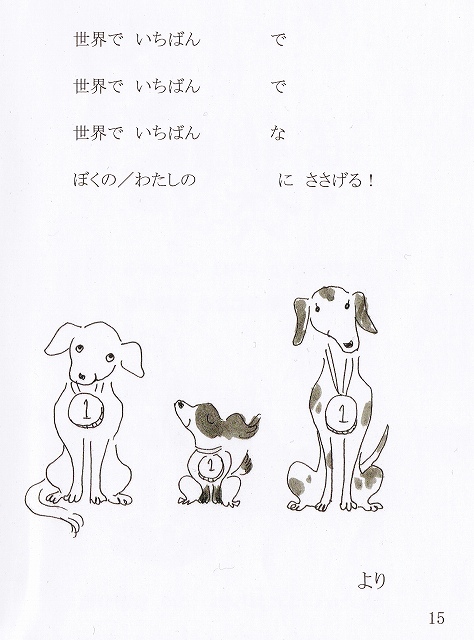 世界で いちばん　　　　で
世界で いちばん　　　　で
世界で いちばん　　　　な
ぼくの／わたしの　　　　に ささげる！
1
1
1
より
15